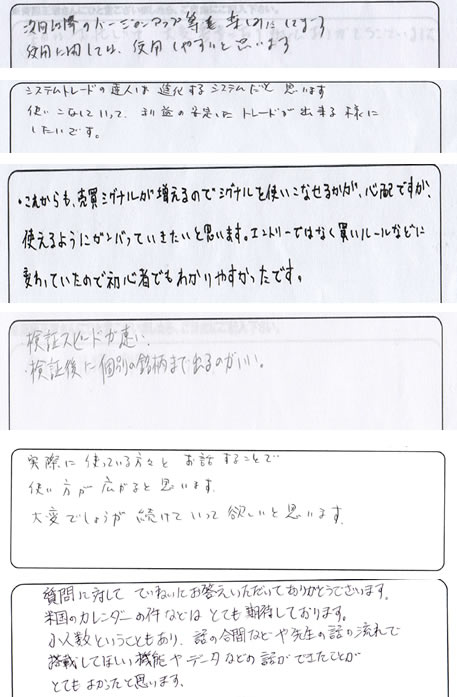 次回以降のバージョンアップ等を楽しみにしてます
使用に関しては、使用しやすいと思います
システムトレードの達人は進化するシステムだと思います
使いこなしていって、利益の安定したトレードが出来る様に
したいです。
・これからも、売買シグナルが増えるのでシグナルを使いこなせるかが、心配ですが、
使えるようにガンバっていきたいと思います。エントリーではなく買いルールなどに
変わっていたので初心者でもわかりやすかったです。
検証スピードが速い、
・検証後に個別の銘柄まで出るのがいい。
実際に使っている方々とお話することで
使い方が広がると思います。
大変でしょうが続けていって欲しいと思います。
質問に対してていねいにお答えいただいてありがとうございます。
米国のカレンダーの件などはとても期待しております。
小人数ということもあり、話の合間などや先生の話の流れで
搭載してほしい機能やデータなどの話ができたことが
とてもよかったと思います。